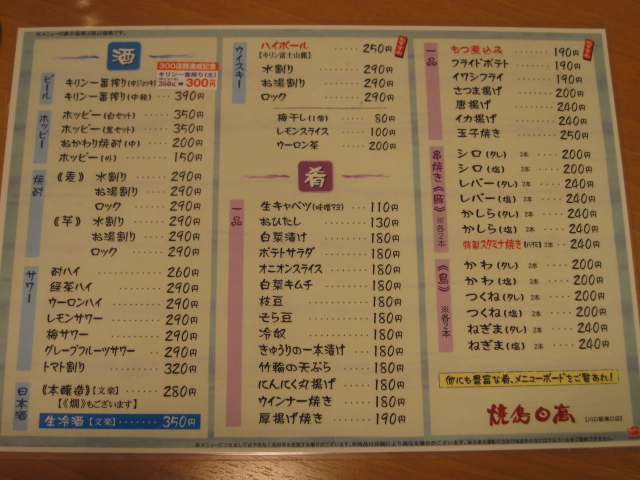 酒
300店舗達成記念
キリン一番搾り(生)
350円 ➡ 300円
ビール
キリン一番搾り(中ジョッキ)
キリン一番搾り(中瓶) 390円
ホッピー
ホッピー(白セット) 350円
ホッピー(黒セット) 350円
おかわり焼酎(中) 200円
ホッピー(外) 150円
焼酎
《麦》 水割り 290円
お湯割り 290円
ロック 290円
《芋》 水割り 290円
お湯割り 290円
ロック 290円
サワー
酎ハイ 260円
緑茶ハイ 290円
ウーロンハイ 290円
レモンサワー 290円
梅サワー 290円
グレープフルーツサワー 290円
トマト割り 320円
日本酒
《本醸造》【文楽】 280円
【《燗》もございます】
生冷酒【文楽】 350円
ウイスキー
ハイボール 250円
【キリン富士山麓】
水割り 290円
お湯割り 290円
ロック 290円
梅干し(1個) 80円
レモンスライス 100円
ウーロン茶 200円
肴
一品
生キャベツ(味噌マヨ) 110円
おひたし 130円
白菜漬け 180円
ポテトサラダ 180円
オニオンスライス 180円
白菜キムチ 180円
枝豆 180円
そら豆 180円
冷奴 180円
きゅうりの一本漬け 180円
竹輪の天ぷら 180円
にんにく丸揚げ 180円
ウインナー焼き 180円
厚揚げ焼き 190円
一品
もつ煮込み 190円
フライドポテト 190円
イワシフライ 190円
さつま揚げ 200円
唐揚げ 240円
イカ揚げ 240円
玉子焼き 250円
串焼き《豚》※各2本
シロ(タレ) 2本 200円
シロ(塩) 2本 200円
レバー(タレ) 2本 240円
レバー(塩) 2本 240円
かしら(タレ) 2本 240円
かしら(塩) 2本 240円
特製スタミナ焼き(バラミ) 2本 240円
《鳥》※各2本
かわ(タレ) 2本 200円
かわ(塩) 2本 200円
つくね(タレ) 2本 200円
つくね(塩) 2本 200円
ねぎま(タレ) 2本 240円
ねぎま(塩) 2本 240円
他にも豊富な肴、メニューボードをご覧あれ!
焼鳥日高
【川口駅東口店】